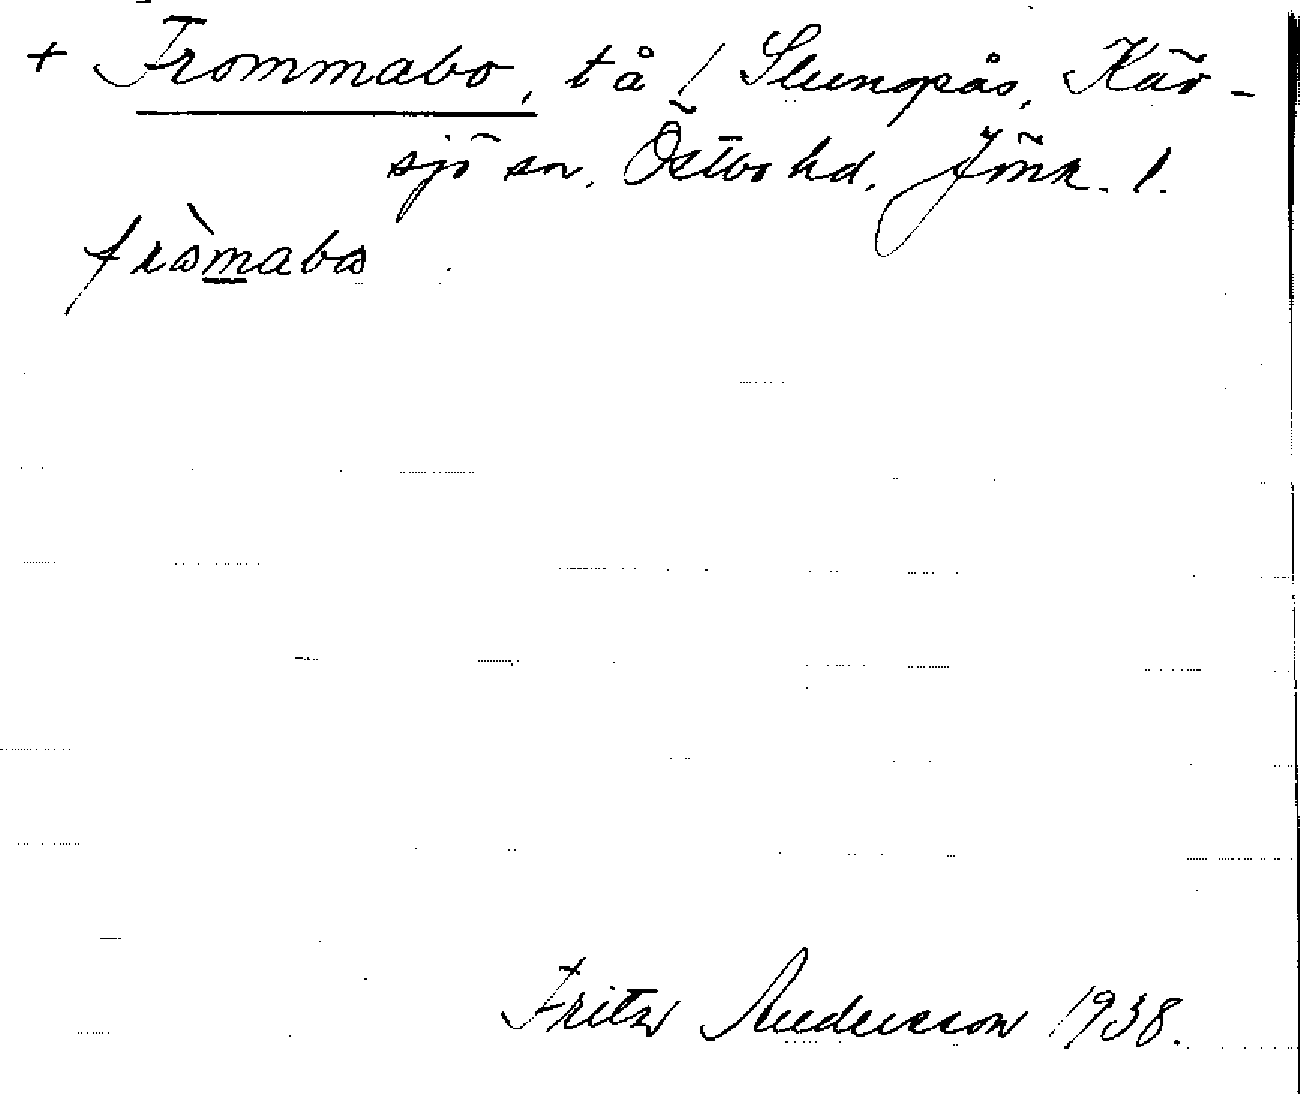 + Frommabo, tå / Slungsås, Kär-
sjö sn, Östbo hd, Jönk. l.
fròmabo
Fritz Andersson 1938.